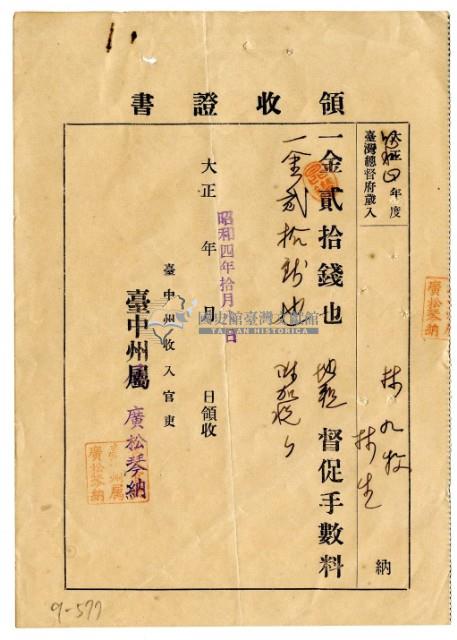 領收證書
昭和四年度
臺灣總督府歲入
納
一金貳拾錢也 地租 督促手數料
一金貳拾錢也 附加税分
大正 年 月 日領收
昭和四年拾月 日
臺中州收入官吏
臺中州屬 廣松琴納
廣松琴納
廣松琴納
國史館臺灣文獻館
TAIWAN HISTORICA
9-577